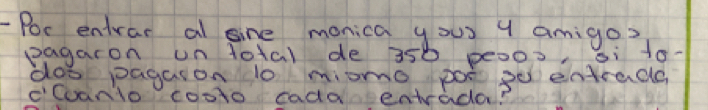 -Por entrar al sine monica y sus 4 amigos,
pagaron un total de 350 pesos, si to-
dos pagaron lo mismo por su entrada
¿Cuanto costo cada entrada?